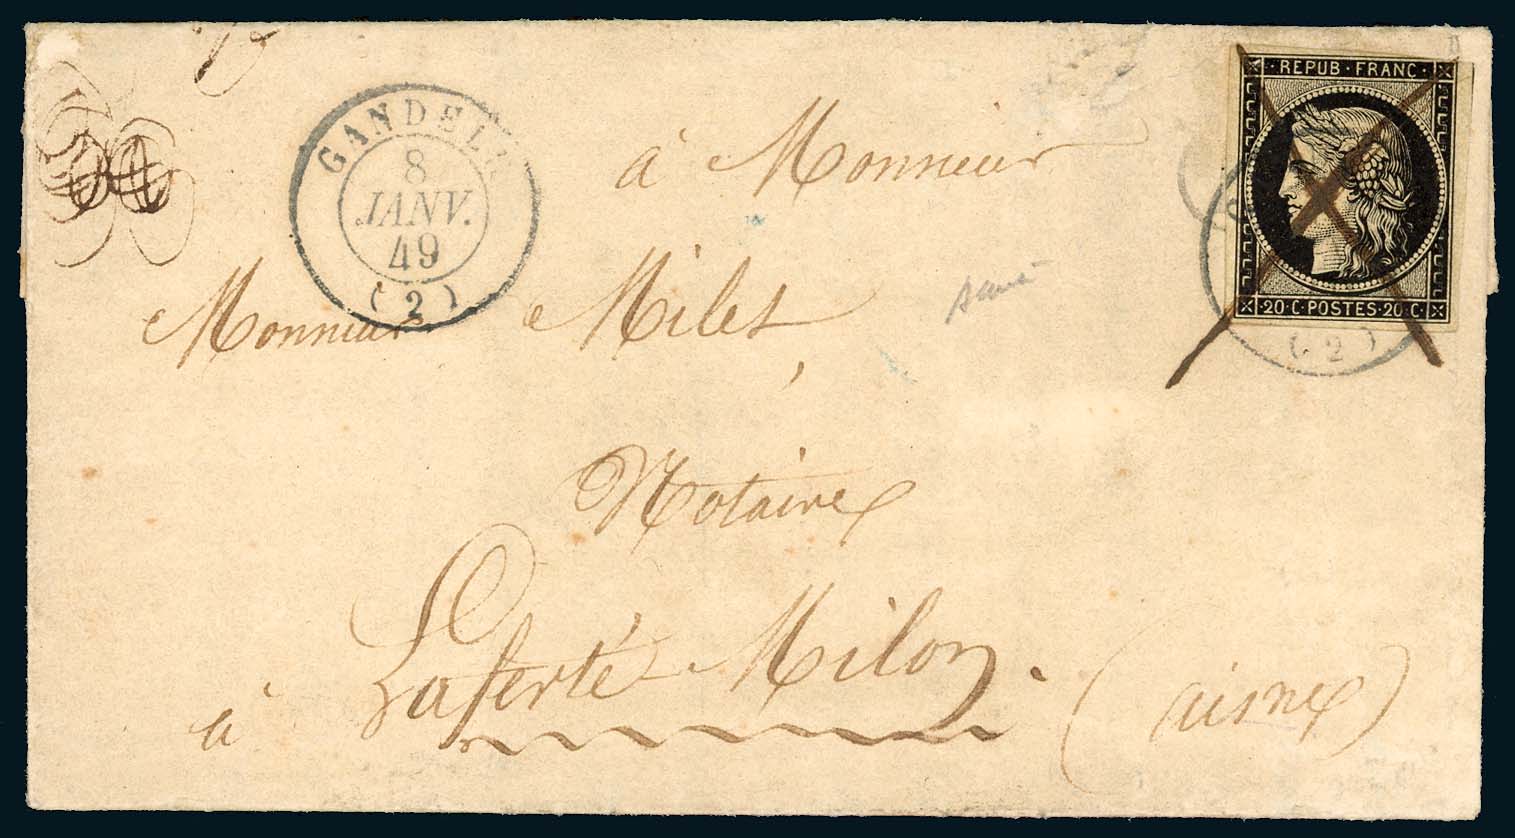 GANDEL
8
JANV.
49
(2)
REPUB·FRANC·
20·C·POSTES·20·C·
(2)
à Monsieur
Monsieur Milet,
Notaire
à Laferté-Milon. (aisne)